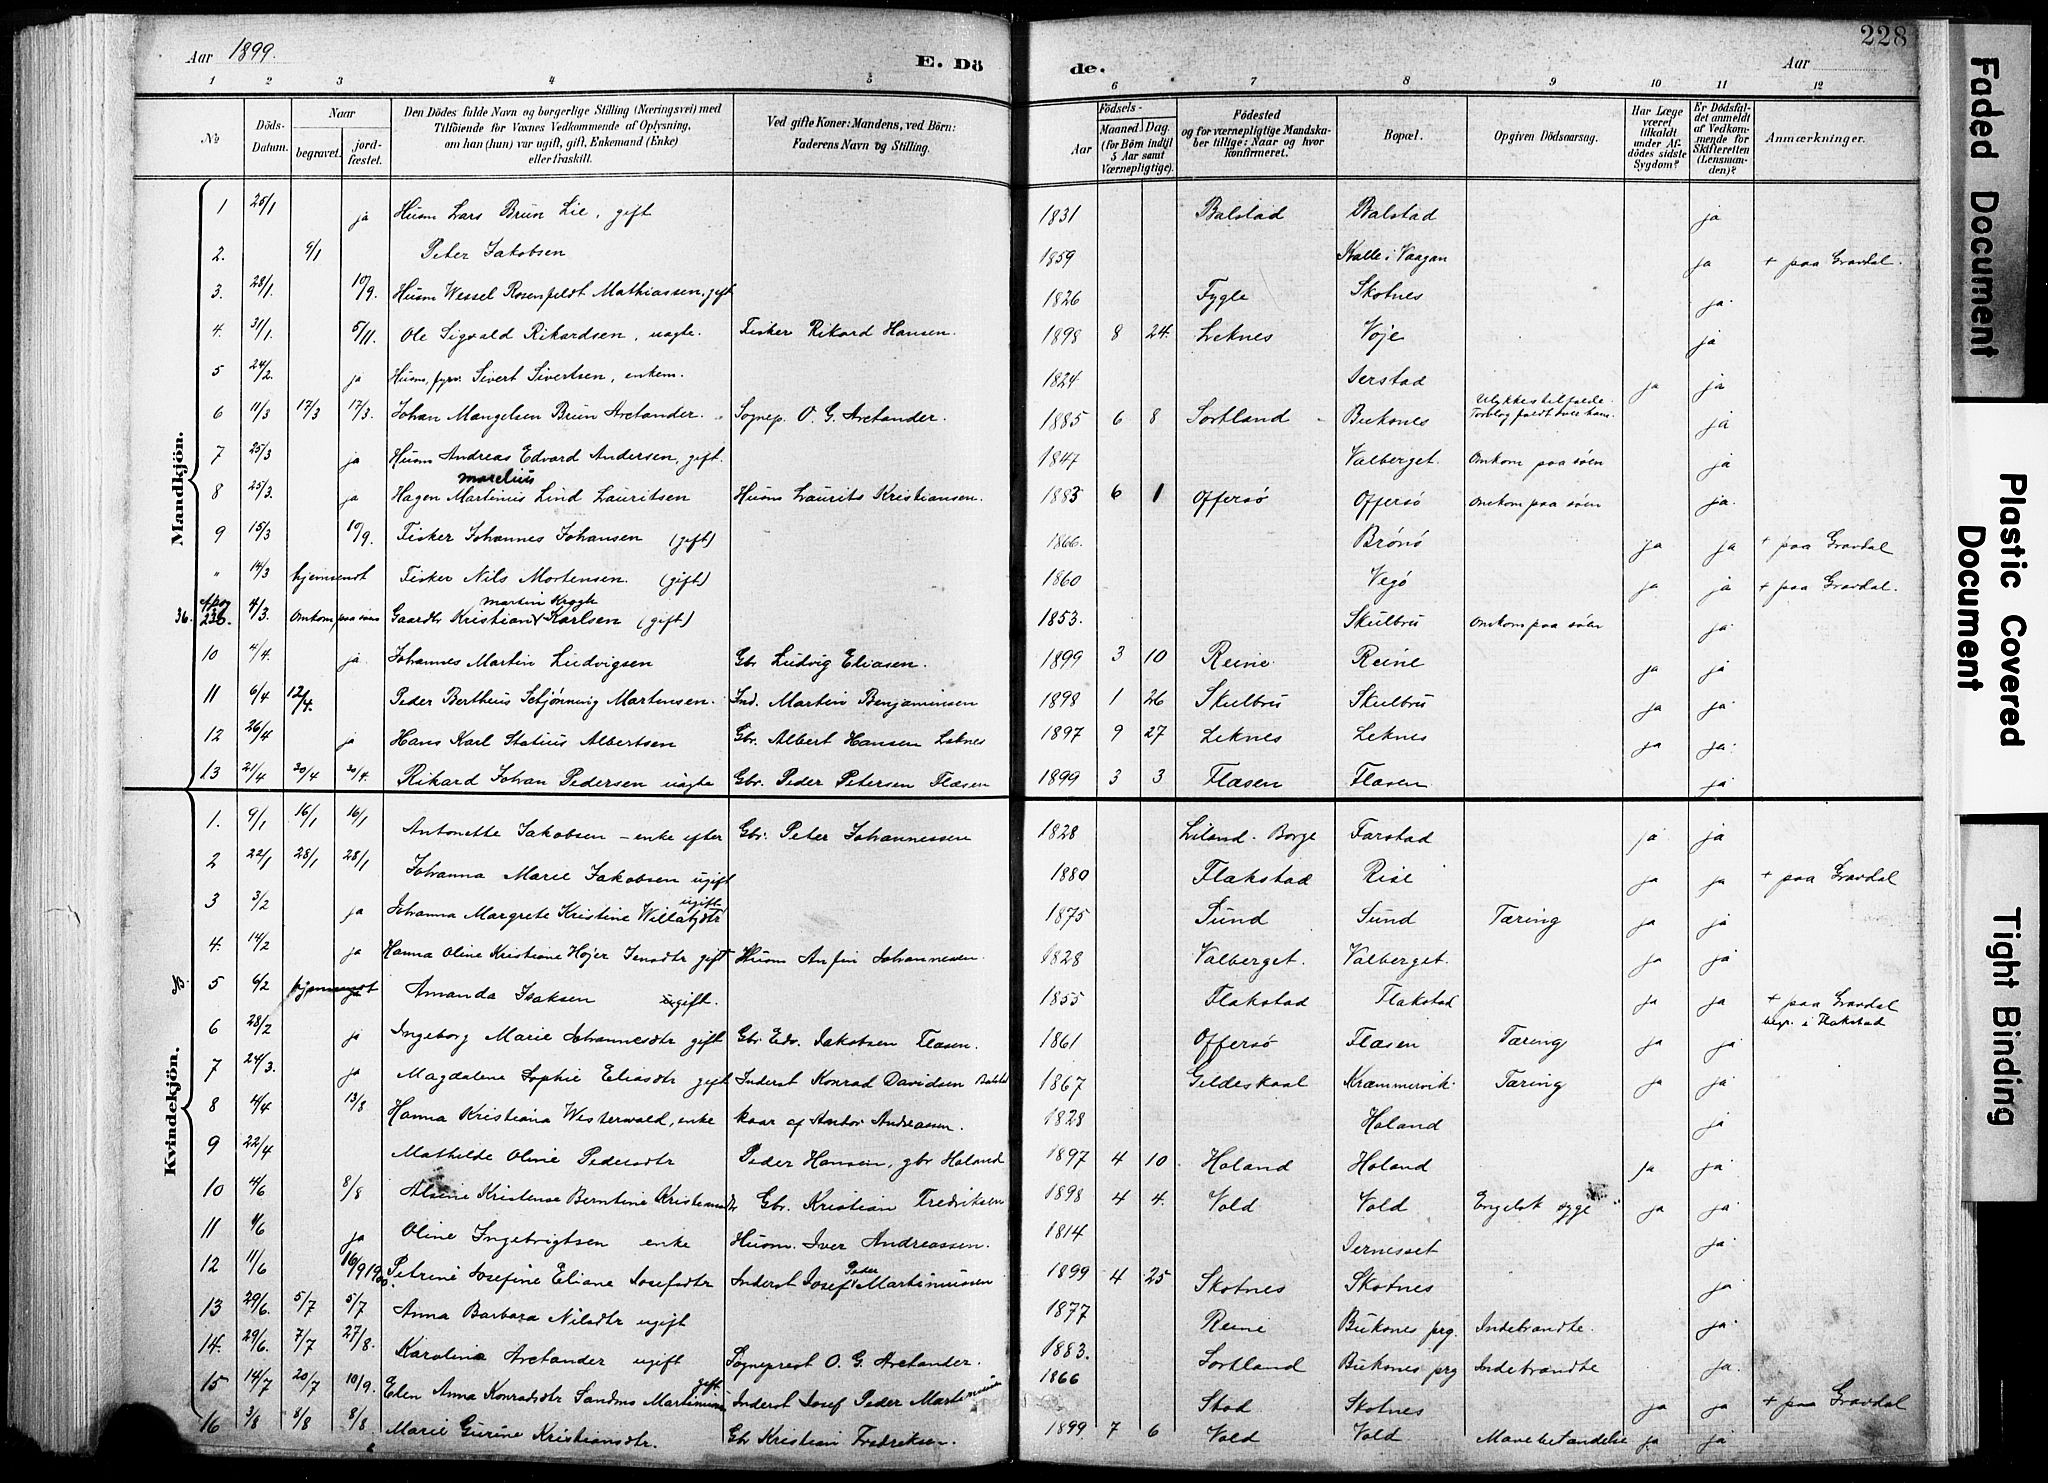 Aar 1899.
E. Dö
de.
Aar
228
1 2 3 4 5 6 7 8 9 10 11 12
№
Döds-Datum.
Naar
begravet.
jord-fæstet.
Den Dödes fulde Navn og borgerlige Stilling (Næringsvei) med
Tilföiende for Voxnes Vedkommende af Oplysning,
om han (hun) var ugift, gift, Enkemand (Enke)
eller fraskilt.
Ved gifte Koner: Mandens, ved Börn:
Faderens Navn og Stilling.
Födsels-
Aar
Maaned. Dag
(for Börn indtil
5 Aar samt
Værnepligtige).
Födested
og for værnepligtige Mandska-
ber tillige: Naar og hvor
konfirmeret.
Bopæl.
Opgiven Dödsaarsag.
Har Læge
været
tilkaldt
under Af-
dödes sidste
Sygdom?
Er Dödsfal-
det anmeldt
af Vedkom-
mende for
Skifteretten
(Lensman-
den)?
Anmærkninger.
Mandkjön.
1 25/1 ja Husm Lars Brun Lie, gift 1831 Balstad Balstad ja
2. 9/1 Peter Jakobsen 1859 Kalle i Vaagan ja + paa Gravdal.
3. 28/1. 10/9. Husm Wessel Rosenfeldt Mathiassen, gift 1826 Fygle Skotnes ja
4. 31/1. 5/11. Ole Sigvald Rikardsen, uægte. Fisker Rikard Hansen. 1898 8 24. Leknes Voje ja
5 24/2. ja Husm, fyrv. Sivert Sivertsen, enkem. 1824 Jerstad ja ja
6 11/3 17/3 17/3. Johan Mangelsen Brun Arctander. Sognep. O. G. Arctander. 1885 6 8 Sortland Buksnes Ulykkestilfælde. Torvlog faldt over ham. ja
7 25/3 ja Husm Andreas Edvard Andersen, gift. 1847 Valberget. Omkom paa søen ja
marelius
8 25/3. ja Hagen Martinus Lind Lauritsen Husm Laurits Kristiansen. 1883 6 1 Offersø Offersø Omkom paa søen ja.
9 15/3 10/9. Fisker Johannes Johansen (gift) 1866. Brønø ja ja + paa Gravdal
" 14/3 hjemsendt Fisker Nils Mortensen. (gift) 1860 Vegø ja ja + paa Gravdal.
martin Krogh
36. 236. 4/3. Omkom paa søen Gaardbr Kristian Karlsen (gift) 1853. Skulbru Omkom paa søen ja
10 4/4. ja Johannes Martin Ludvigsen Gbr Ludvig Eliasen. 1899 3 10 Reine Reine ja ja
11 6/4 12/4. Peder Bertheus Schjønning Martensen. Ind. Martin Benjaminsen 1898 1 26 Skulbru Skulbru ja ja
12 26/4 ja Hans Karl Statius Albertsen Gbr. Albert Hansen Leknes 1897 9 27 Leknes Leknes ja ja
13 21/4 30/4 30/4. Rikard Johan Pedersen uægte Gbr. Peder Petersen Flæsen 1899 3 3 Flæsen Flæsen ja
Kvindekjön.
1. 9/1 16/1 16/1 Antonette Jakobsen - enke efter Gbr. Peter Johannessen 1828 Liland. Borge Farstad ja ja
2 22/1 28/1 28/1 Johanna Marie Jakobsen ugift 1880 Flakstad Rise ja ja + paa Gravdal
ugift
3 3/2 ja Johanna Margrete Kristine Willatzdtr 1875 Sund Sund Tæring ja ja
4. 14/2 ja Hanna Oline Kristiane Højer Jensdtr gift Husm Anfin Johannesen. 1828 Valberget. Valberget. ja ja
5 6/2 hjemsendt ja Amanda Isaksen ugift. 1855 Flakstad Flakstad ja ja + paa Gravdal
begr. i Flakstad
6 28/2 ja Ingeborg Marie Johannesdtr gift Gbr Edv. Jakobsen Flæsen. 1861 Offersø Flæsen Tæring ja ja
7 24/3. ja Magdalene Sophie Eliasdtr gift Inderst Konrad Davidsen 1867 Gildeskaal Kræmmervik Tæring ja ja
8 4/4 13/8 Hanna Kristiana Westerwald, enke 1828 Holand ja
9 22/4 Mathilde Oline Pedersdtr Peder Hansen, gbr Holand 1897 4 10 Holand Holand ja ja
10 4/6 8/8 Alsine Kristense Berntine Kristiansdtr Gbr. Kristian Fredriksen 1898 4 4. Vold Vold Engelsk syge ja ja
11 1/6 ja Oline Ingebrigtsen enke Husm. Iver Andreassen. 1814 Jernesset ja
Peder
12 11/6 16/9 1900. Petrine Josefine Eliane Josefsdtr Inderst Josef Martinussen 1899 4 25 Skotnes Skotnes ja
13 29/6. 5/7 5/7 Anna Barbara Nilsdtr ugift 1877 Reine Buksnes prg. Indebrændte. ja
14. 29/6. 7/7 27/8. Karolina Arctander ugift Sogneprest O. G. Arctander. 1883. Sortland Buksnes prg Indebrændte ja
gift
15 14/7 20/7 10/9. Elen Anna Konradsdtr Sandmo Inderst Josef Peder Martinussen 1866 Stad Skotnes ja ja + paa Gravdal
16 3/8 8/8 8/8 Marie Gurine Kristiansdtr. Gbr Kristian Fredriksen. 1899 7 6 Vold Vold Mavebetændelse ja ja
Faded Document
Plastic Covered
Document
Tight Binding